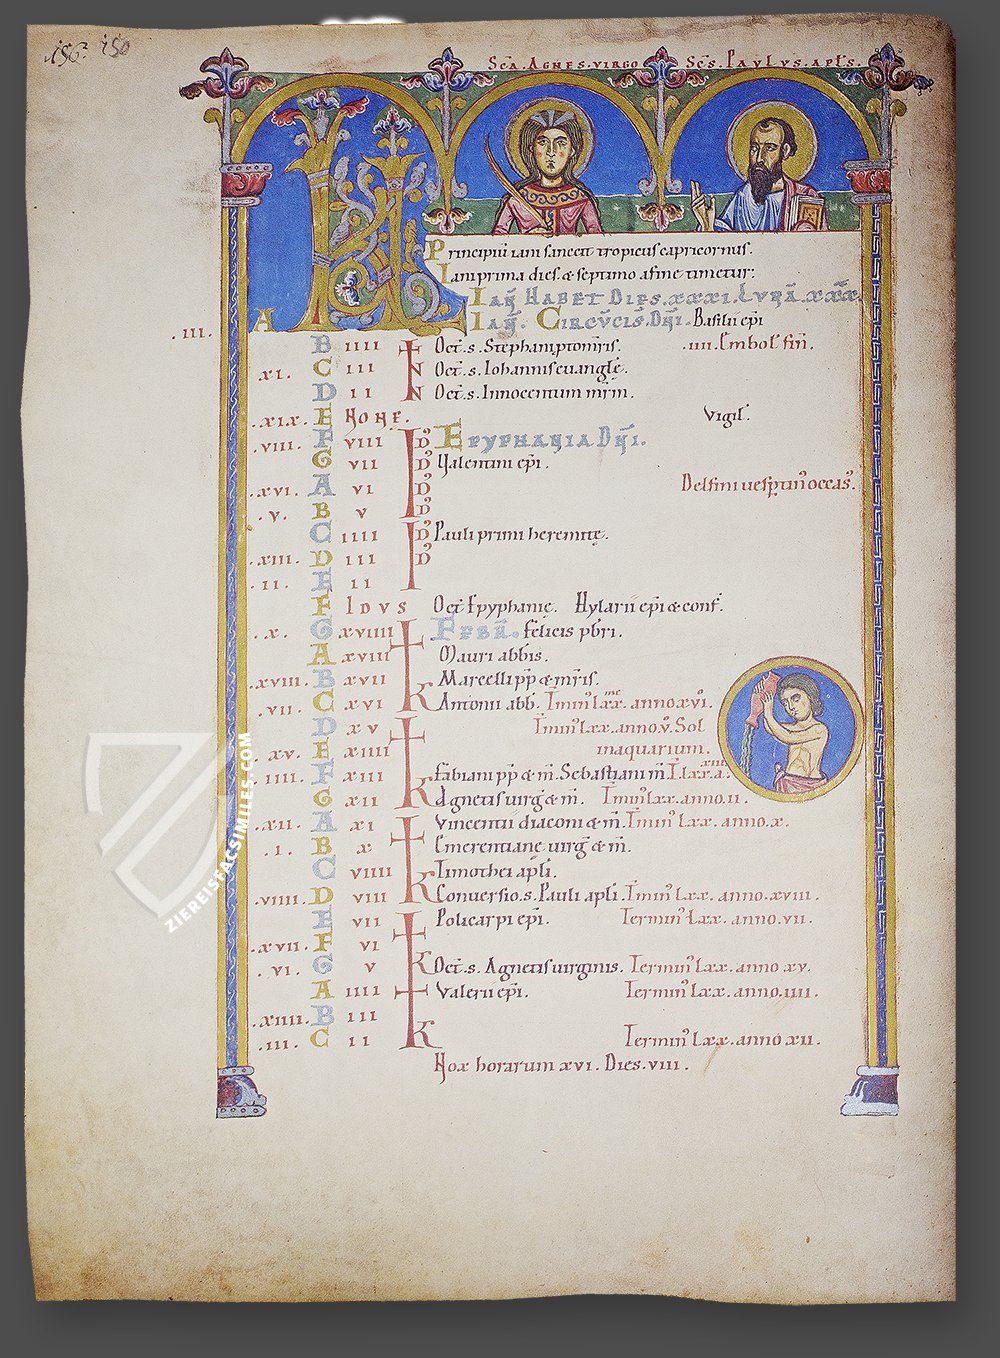 .156. 150
SCA. AGNES. VIRGO SCS. PAVLVS. APLS.
KL
Principiū iam sancit tropicus capricornus.
Iani prima dies. & septimo a fine timetur:
IAN HABET DIES. XXXI. LVNĀ. XXX.
.III. A IAN. CIRCVCIS. DNI. Basilii epi
B IIII Oct. s. Stephani ptomris. .IIII. Embol. fin.
.XI. C III N Oct. s. Iohannis euangle.
D II N Oct. s. Innocentum mrm.
.XIX. E NONE. Vigil.
.VIII. F VIII ID EPYPHANIA DNI.
G VII ID Valentini epi.
.XVI. A VI ID Delfini uesptin occas.
.V. B V ID
C IIII ID Pauli primi heremite.
.XIII. D III ID
.II. E II
F IDVS Oct. Epyphanie. Hylarii epi & conf.
.X. G XVIIII FEBR. felicis pbri.
A XVIII Mauri abbis.
.XVIII. B XVII Marcelli pp & mris.
.VII. C XVI K Antonii abb. Tmin LXXme anno XVI.
D XV Tmin LXX. anno V. Sol
.XV. E XIIII in aquarium.
.IIII. F XIII Fabiani pp & m. Sebastiani m. T. LXX. a. XIII
G XII K Agnetis uirg & m. Tmin LXX. anno. II.
.XII. A XI Vincentii diaconi & m. Tmin LXX. anno. X.
.I. B X Emerentiane uirg & m.
C VIIII Timothei apli.
.VIIII. D VIII K Conuersio. s. Pauli apli. Tmin LXX. anno. XVIII.
E VII Policarpi epi. Termin LXX. anno. VII.
.XVII. F VI
.VI. G V K Oct. s. Agnetis uirginis. Termin LXX. anno XV.
A IIII Valerii epi. Termin LXX. anno. IIII.
.XIIII. B III
.III. C II K Termin LXX. anno XII.
Nox horarum XVI. Dies. VIII.
ZIEREISFACSIMILES.COM